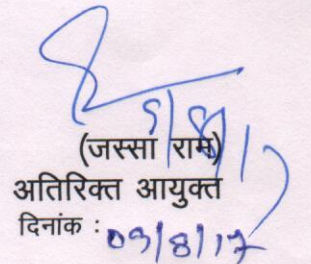 (जस्सा राम)
अतिरिक्त आयुक्त
दिनांक : 09/8/17